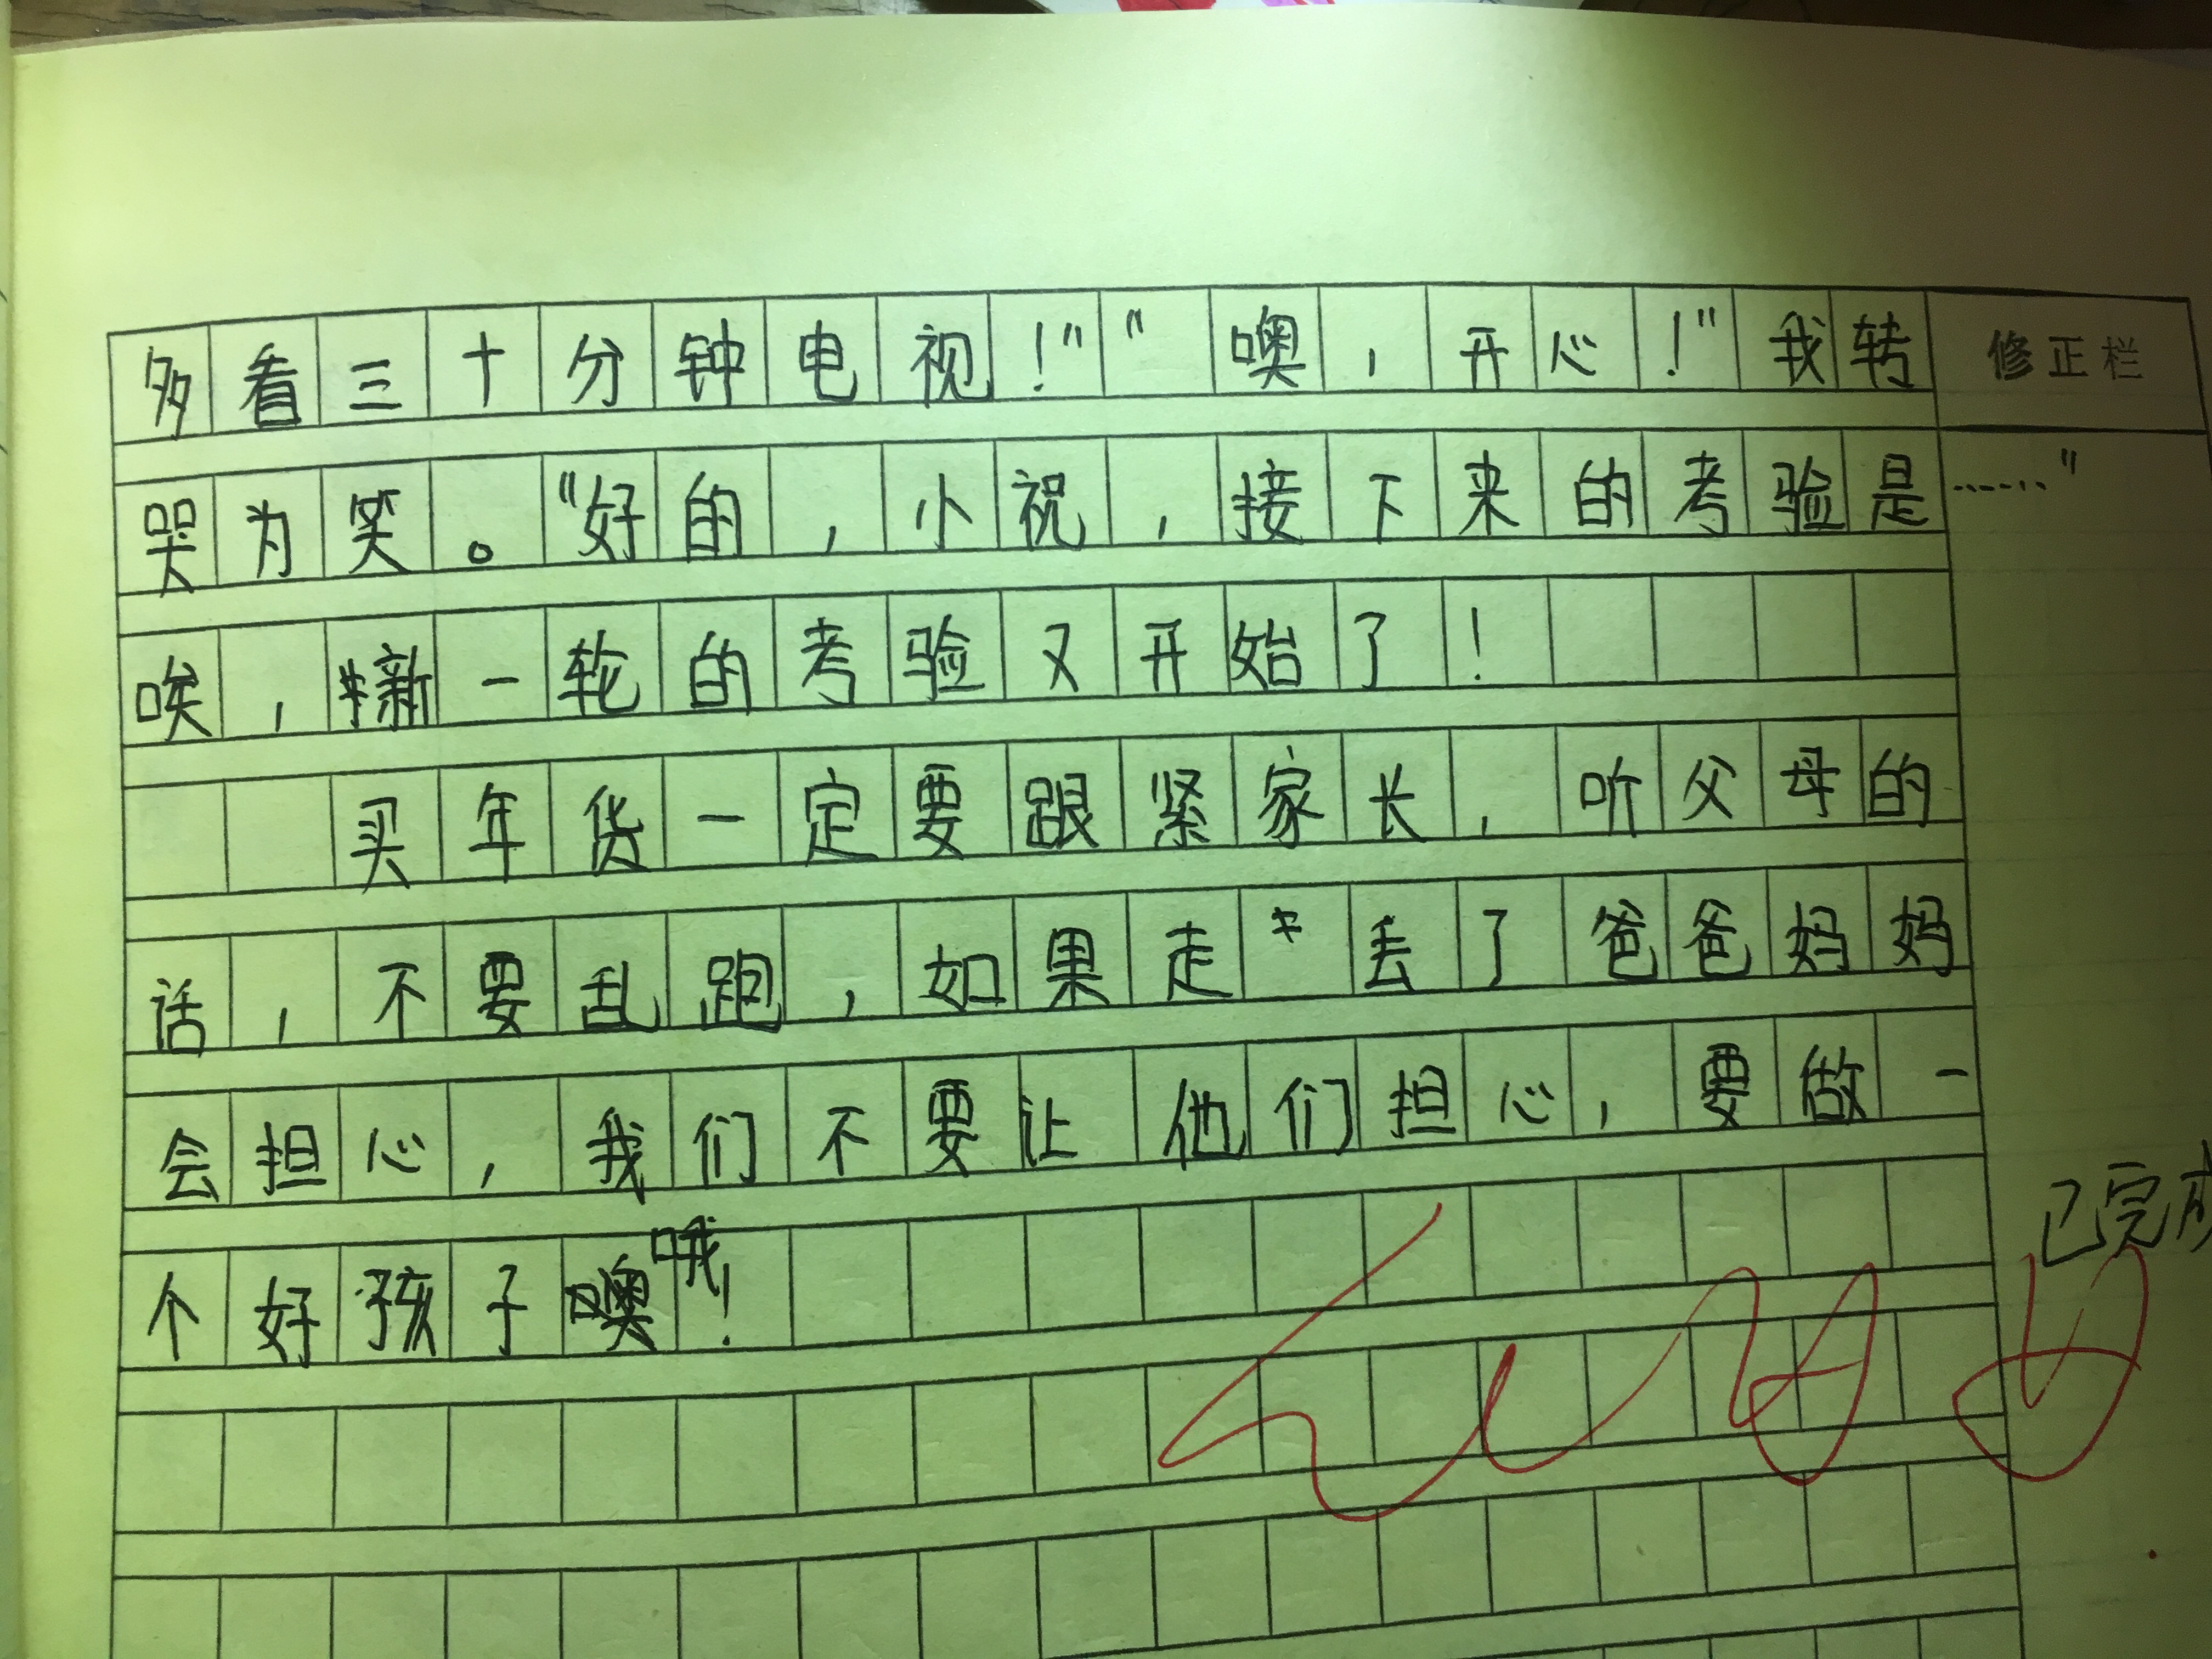 多看三十分钟电视！”“噢，开心！”我转
修正栏
哭为笑。“好的，小祝，接下来的考验是……”
唉，新一轮的考验又开始了！
买年货一定要跟紧家长，听父母的
话，不要乱跑，如果走丢了爸爸妈妈
会担心，我们不要让他们担心，要做一
个好孩子哦！
已完成